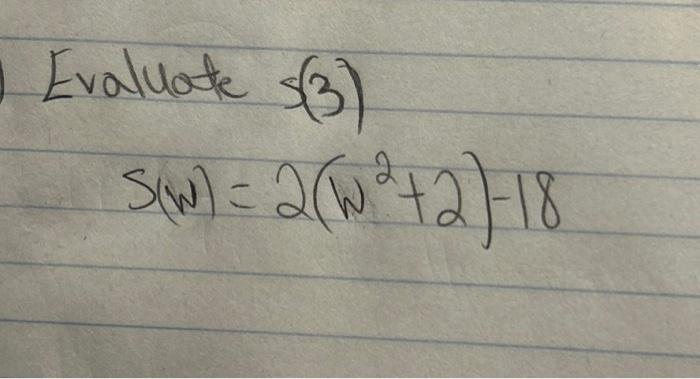 ) Evaluate s(3)
S(w) = 2(w²+2)-18